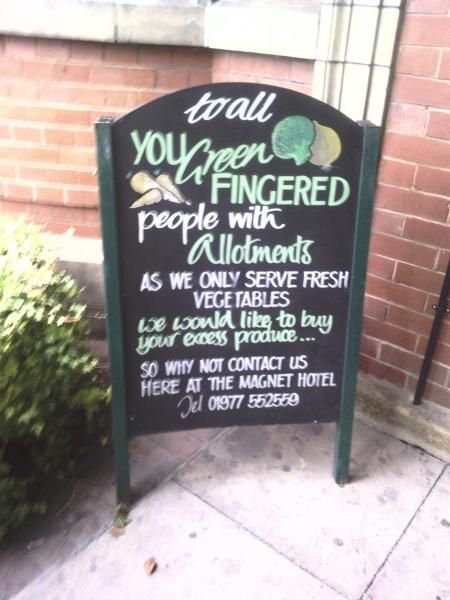 to all
YOU Green
FINGERED
people with
Allotments
AS WE ONLY SERVE FRESH
VEGETABLES
we would like to buy
your excess produce...
SO WHY NOT CONTACT US
HERE AT THE MAGNET HOTEL
Tel 01977 552559